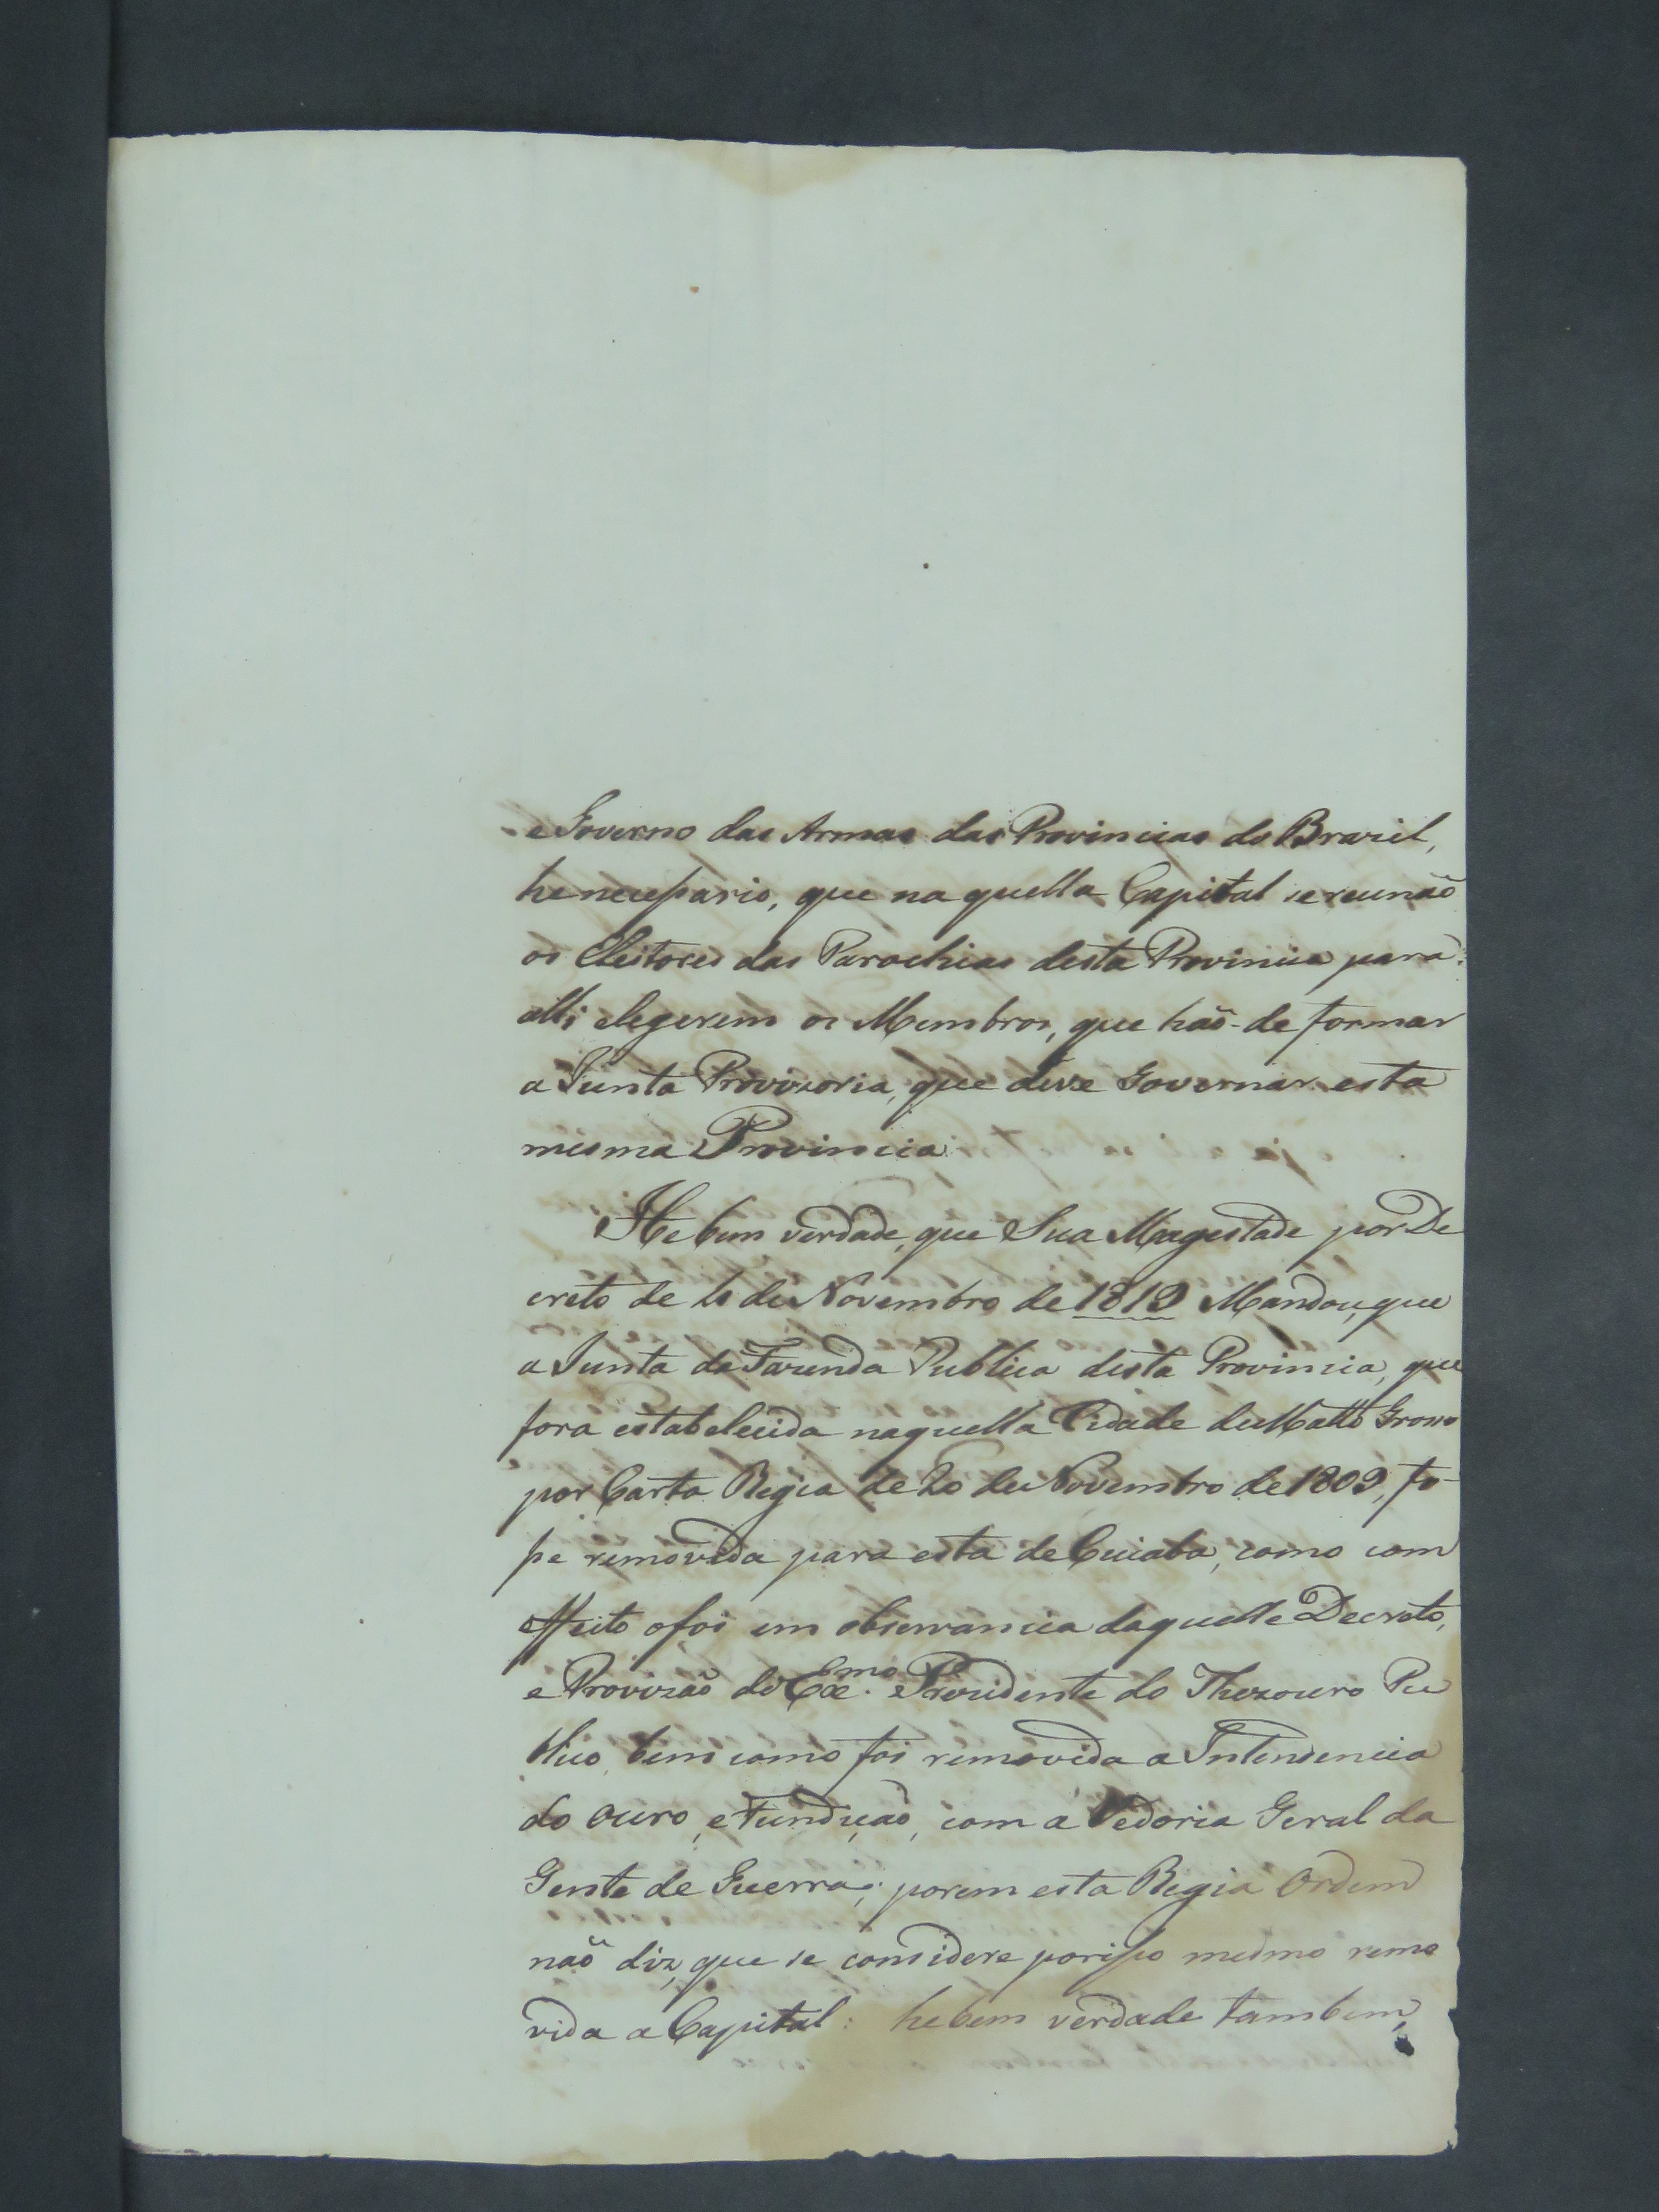 e Governo das Armas das Provincias do Brazil,
he necessario, que naquella Capital se reunão
os Eleitores das Parochias desta Provincia para
alli elegerem os Membros, que hão-de formar
a Junta Provizoria, que deve Governar esta
mesma Provincia
He bem verdade, que Sua Magestade por De
creto de 10 de Novembro de 1819 Mandou, que
a Junta da Fazenda Publica desta Provincia, que
fora estabelecida naquella Cidade de Matto Grosso
por Carta Regia de 20 de Novembro de 1809, fo-
sse removida para esta de Cuiaba, como com
effeito o foi em observancia daquelle Decreto,
e Provizão do Exmo. Prezidente do Thezouro Pu
blico, bem como foi removida a Intendencia
do Ouro, e Fundição, com a Vedoria Geral da
Gente de Guerra; porem esta Regia Ordem
não diz, que se considere porisso mesmo remo
vida a Capital: he bem verdade tambem,